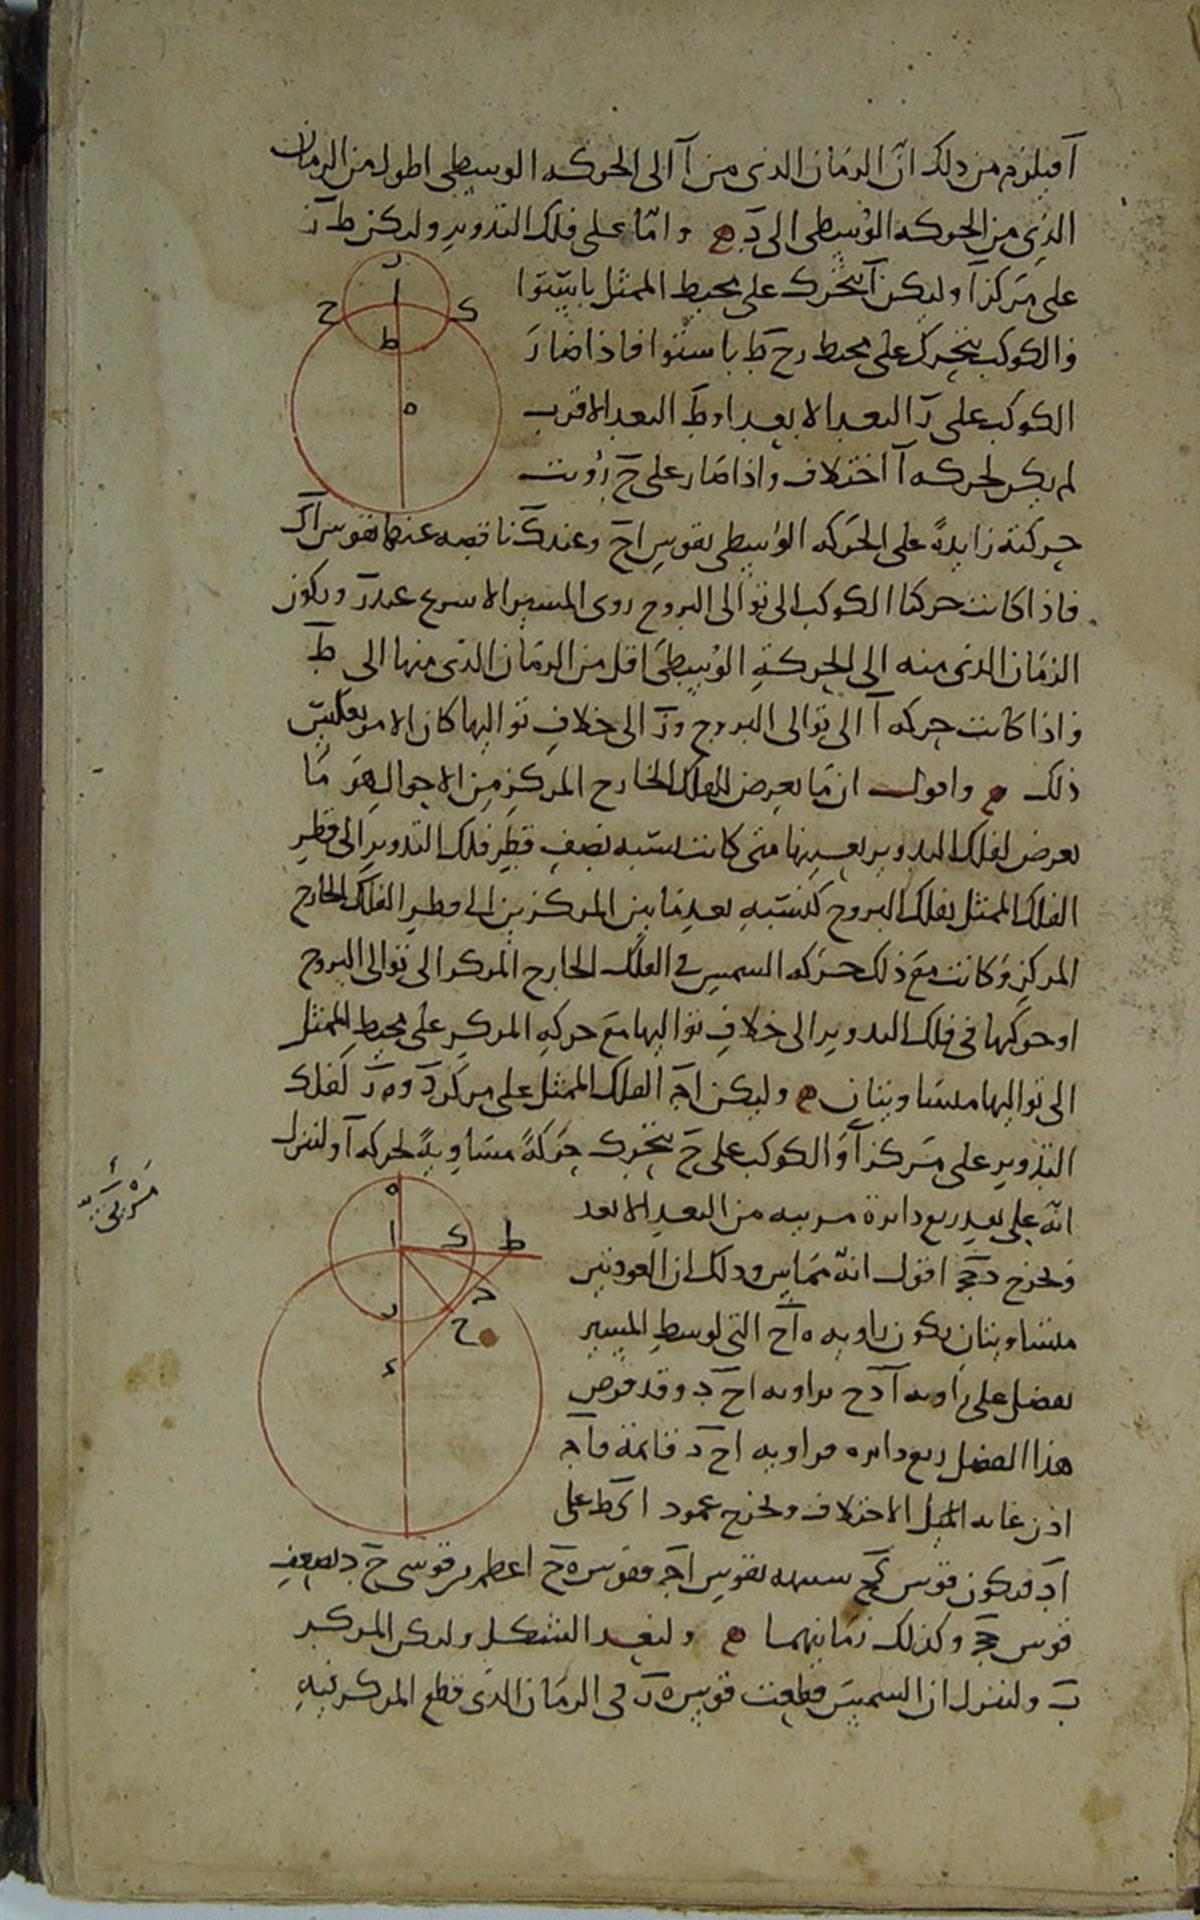 آ فيلزم من ذلك انّ الزمان الذى من آ الى الحركه الوسطى اطول من الزمان
الذى من الحركه الوسطى الى دَ ه وامّا على فلك التدوير وليكن ط ز
على مركز آ وليكن آ يتحرك على محيط الممثل باستوا
والكوكب يتحرك على محيط زح ط باستوا فاذا صار
الكوكب على ز البعد الابعد او ط البعد الاقرب
لم يكن لحركه آ اختلاف واذا صار على ح رؤيت
حركته زايدةً على الحركه الوسطى بقوس اح وعند ك ناقصه عنها بقوس اك
فاذا كانت حركتا الكوكب الى توالى البروج روى المسير الاسرع عند ز ويكون
الزمان الذى منه الى الحركةِ الوسطى اقل من الزمان الذى منها الى ط
واذا كانت حركه آ الى توالى البروج وز الى خلاف تواليها كان الامر بعكس
ذلك ه واقول ان ما يعرض للفلك الخارج المركز من الاحوال هو ما
يعرض لفلك التدوير بعينها متى كانت نسبه نصف قطر فلك التدوير الى قطر
الفلك الممثل بفلك البروج كنسبهِ بعد ما بين المركزين الى قطر الفلك الخارج
المركز وكانت مع ذلك حركه الشمس فى الفلك الخارج المركز الى توالى البروج
او حركتها فى فلك التدوير الى خلاف تواليها مع حركهِ المركز على محيط الممثل
الى تواليها متساويتان ه وليكن اج الفلك الممثل على مركز د وه ز لفلك
التدوير على مركز آ والكوكب على ح يتحرك حركةً مساويةً لحركه آ ولننزل
انّه على بعد ربع دايرة مريىه من البعد الابعد
ونخرج دح ج اقول انّه مماس وذلك ان العودتين
متساويتان يكون زاويه ه اح التى لوسط المسير
يفضل على زاويه ادح بزاويه اح د وقد فرض
هذا الفضل ربع دايره فزاويه اح د قائمة فاج
اذن غايه الميل الاختلاف ونخرج عمود اكط على
اد فيكون قوس كح شبيهه بقوس اج فقوس ه ح اعظم من قوسى ح ز بضعف
قوس كح وكذلك زمانيهما ه ولنعد الشكل وليكن المركز
بَ ولننزل ان الشمس قطعت قوس ه ز فى الزمان الذى قطع المركز فيه
ز
ا
ح
ك
ط
ه
مَرْئيّة
ه
ا
ك
ط
ج
ز
ح
د